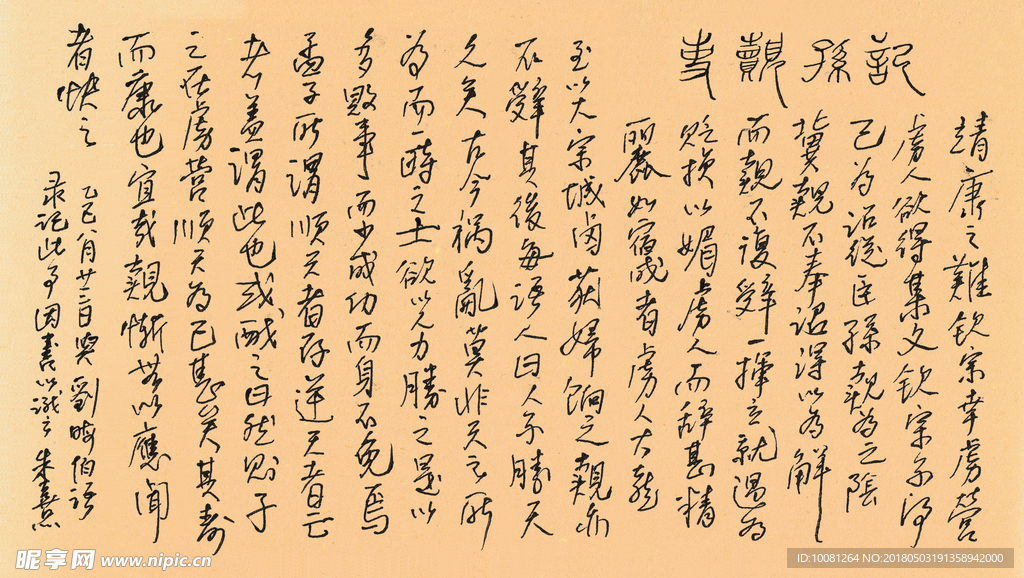 記孫覿事
靖康之難欽宗幸虜營
虜人欲得某文欽宗不得
已為詔從臣孫覿為之陰
冀覿不奉詔得以為解
而覿不復辭一揮立就過為
貶損以媚虜人而辭甚精
麗如宿成者虜人大喜
至以大宗城鹵獲婦餉之覿亦
不辭其後每語人曰人不勝天
久矣古今禍亂莫非天之所
為而一時之士欲以人力勝之是以
多敗事而少成功而身不免焉
孟子所謂順天者存逆天者亡
者蓋謂此也或戲之曰然則子
之在虜營順天為已甚矣其壽
而康也宜哉覿慚無以應聞
者快之
乙巳八月廿二日與劉晦伯語
录記此事因書以識之 朱熹
昵享网 www.nipic.cn
ID:10081264 NO:20180503191358942000